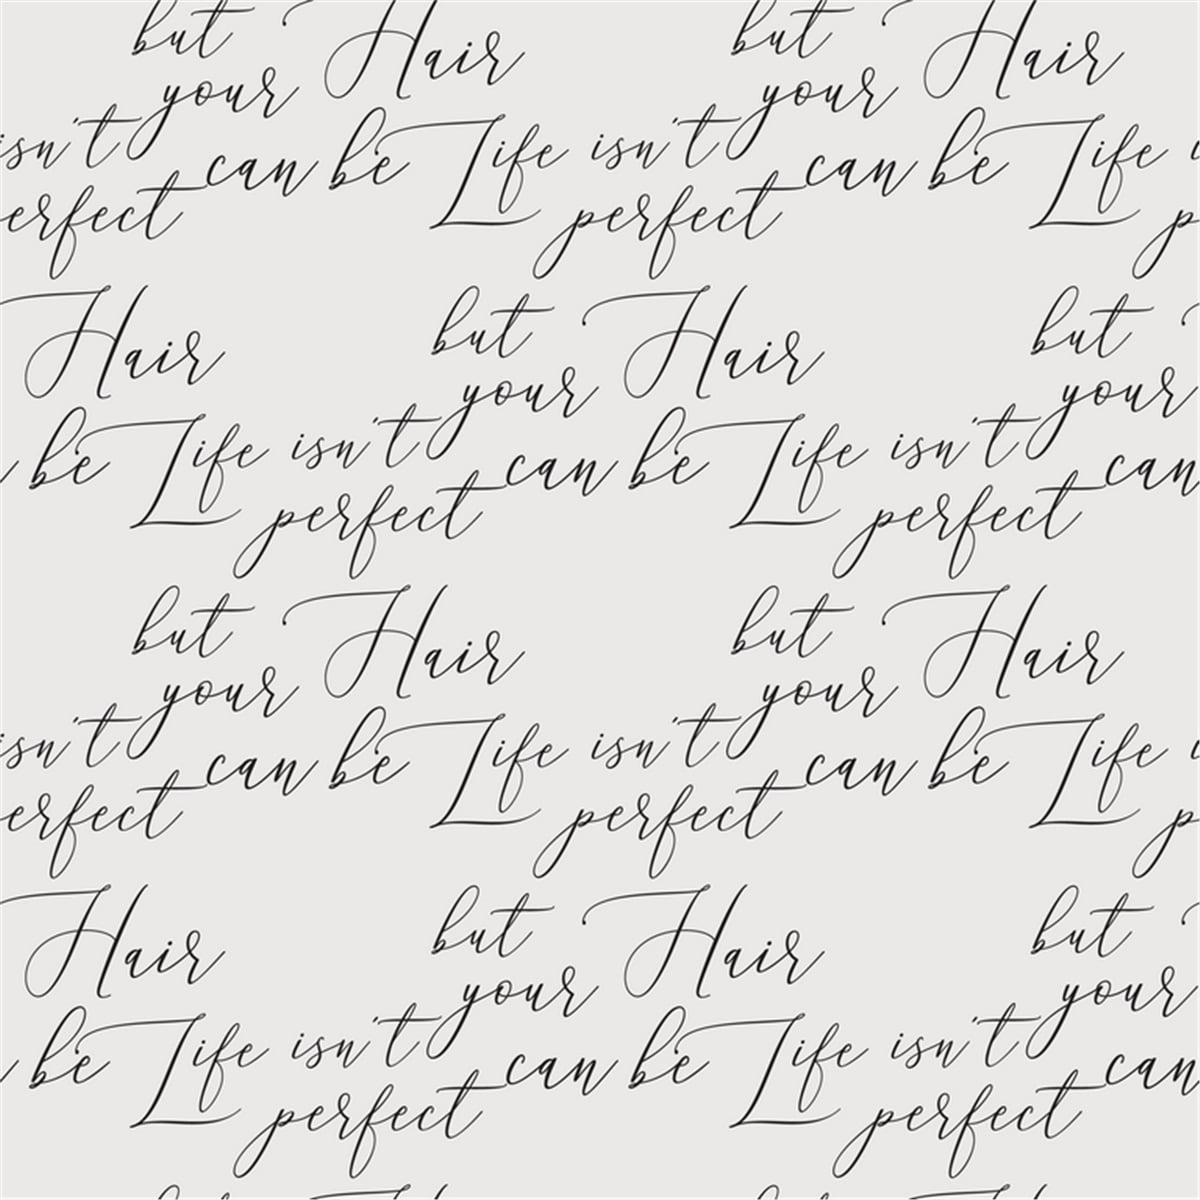 but Hair but Hair
your your
isn't can be Life isn't can be Life
erfect perfect p
Hair but Hair but
your your
be Life isn't can be Life isn't can
perfect perfect
but Hair but Hair
your your
isn't can be Life isn't can be Life
erfect perfect p
Hair but Hair but
your your
be Life isn't can be Life isn't can
perfect perfect